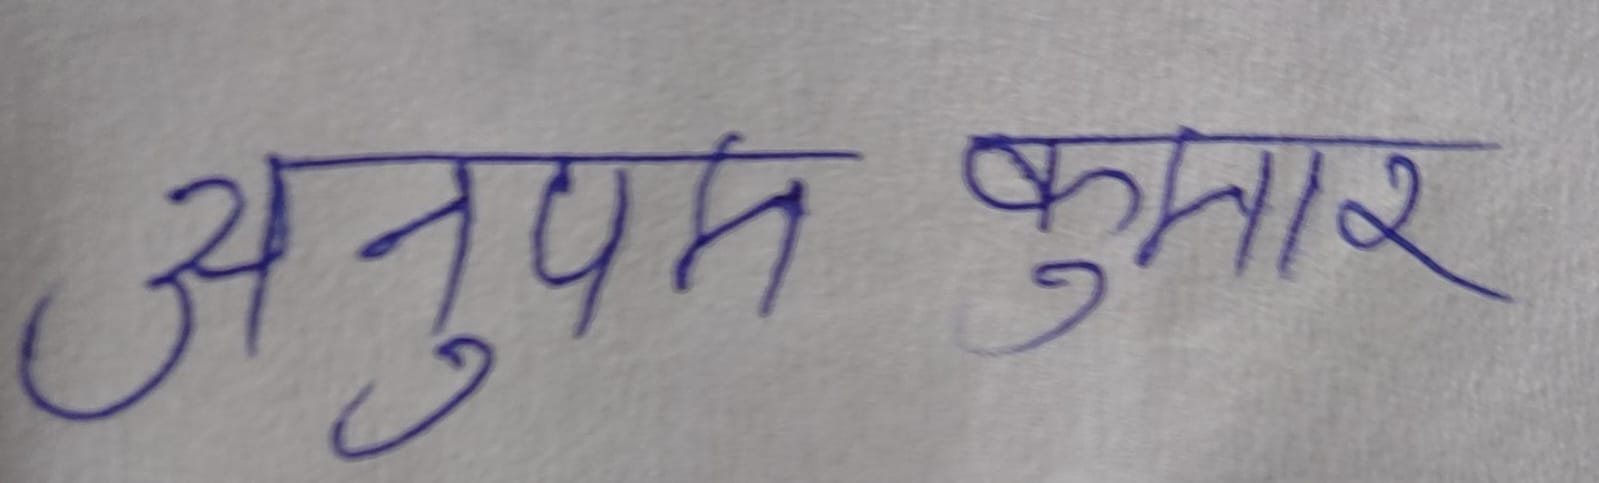 अनुपम कुमार